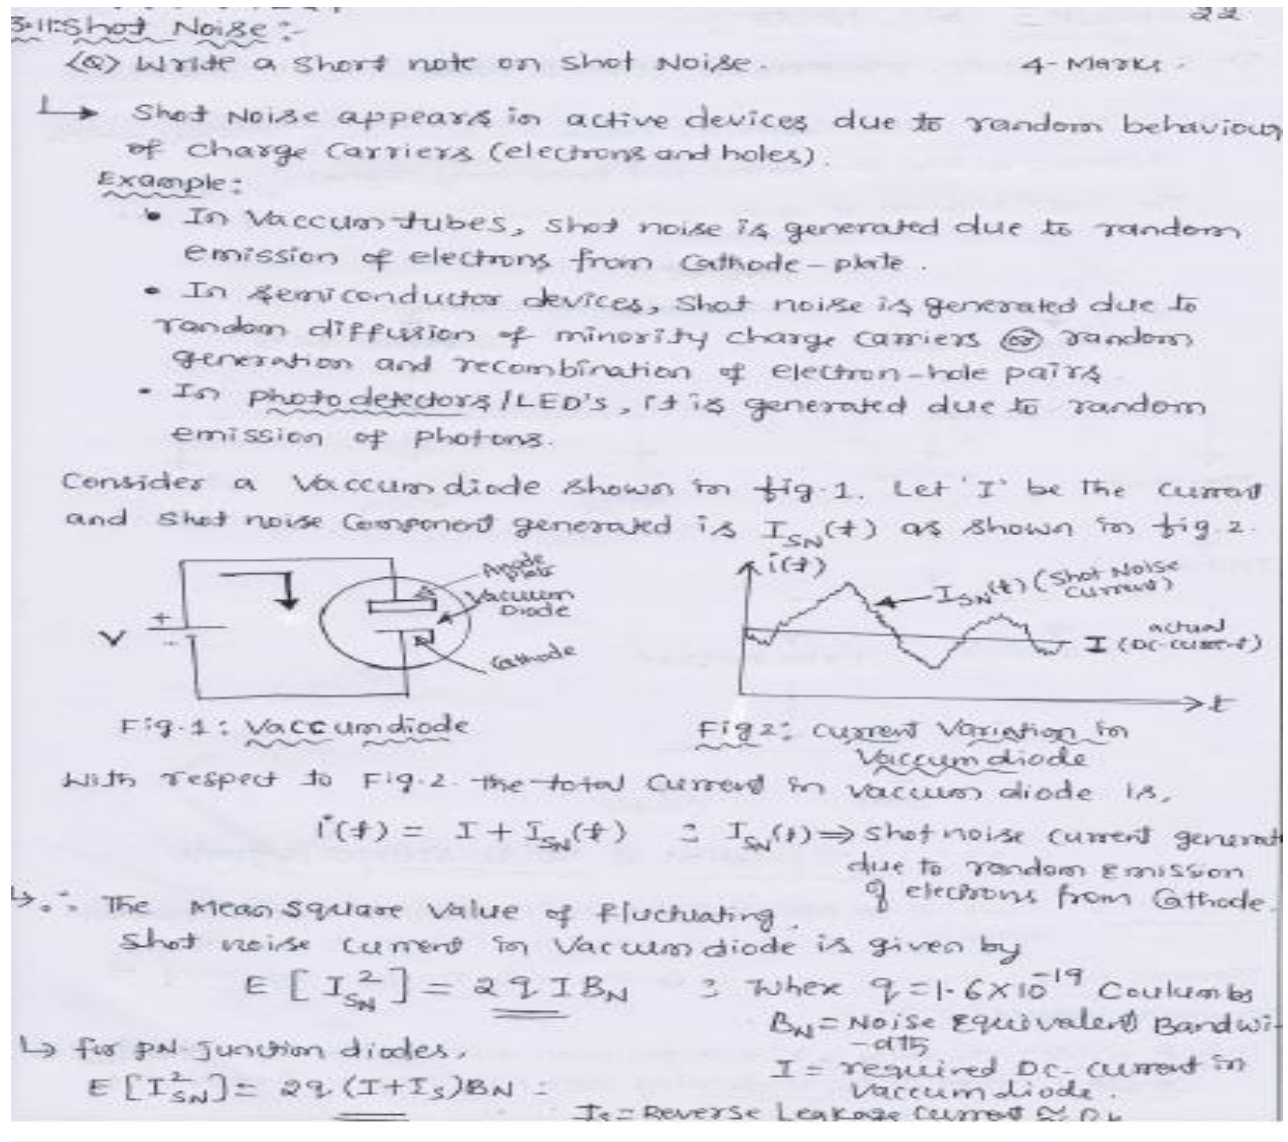 22
3.11: Shot Noise :-
(Q) Write a Short note on Shot Noise. 4-Marks.
↳ Shot Noise appears in active devices due to random behaviour
of charge Carriers (electrons and holes).
Example:
• In Vaccum tubes, Shot noise is generated due to random
emission of electrons from Cathode-plate.
• In Semiconductor devices, Shot noise is generated due to
random diffusion of minority charge carriers (or) random
generation and recombination of electron-hole pairs.
• In photodetectors/LED's, it is generated due to random
emission of Photons.
Consider a Vaccum diode shown in fig.1. Let 'I' be the current
and Shot noise Component generated is I_SN(t) as shown in fig.2.
V + -
Anode Plate
Vacuum Diode
Cathode
i(t)
I_SN(t) (Shot Noise Current)
I (actual DC-current)
t
Fig.1: Vaccum diode
Fig 2: Current Variation in
Vaccum diode
With respect to Fig.2. the total Current in vacuum diode is,
i(t) = I + I_SN(t) : I_SN(t) ⇒ Shot noise current generat
due to random Emission
of electrons from Cathode.
↳ ∴ The Mean Square Value of Fluctuating
Shot noise Current in Vacuum diode is given by
E[I²_SN] = 2qIB_N : Where q = 1.6×10⁻¹⁹ Coulumbs
B_N = Noise Equivalent Bandwi-
-dth
↳ for PN-Junction diodes,
I = required DC-current in
Vaccum diode.
E[I²_SN] = 2q(I+I_S)B_N :
I_S = Reverse Leakage Current